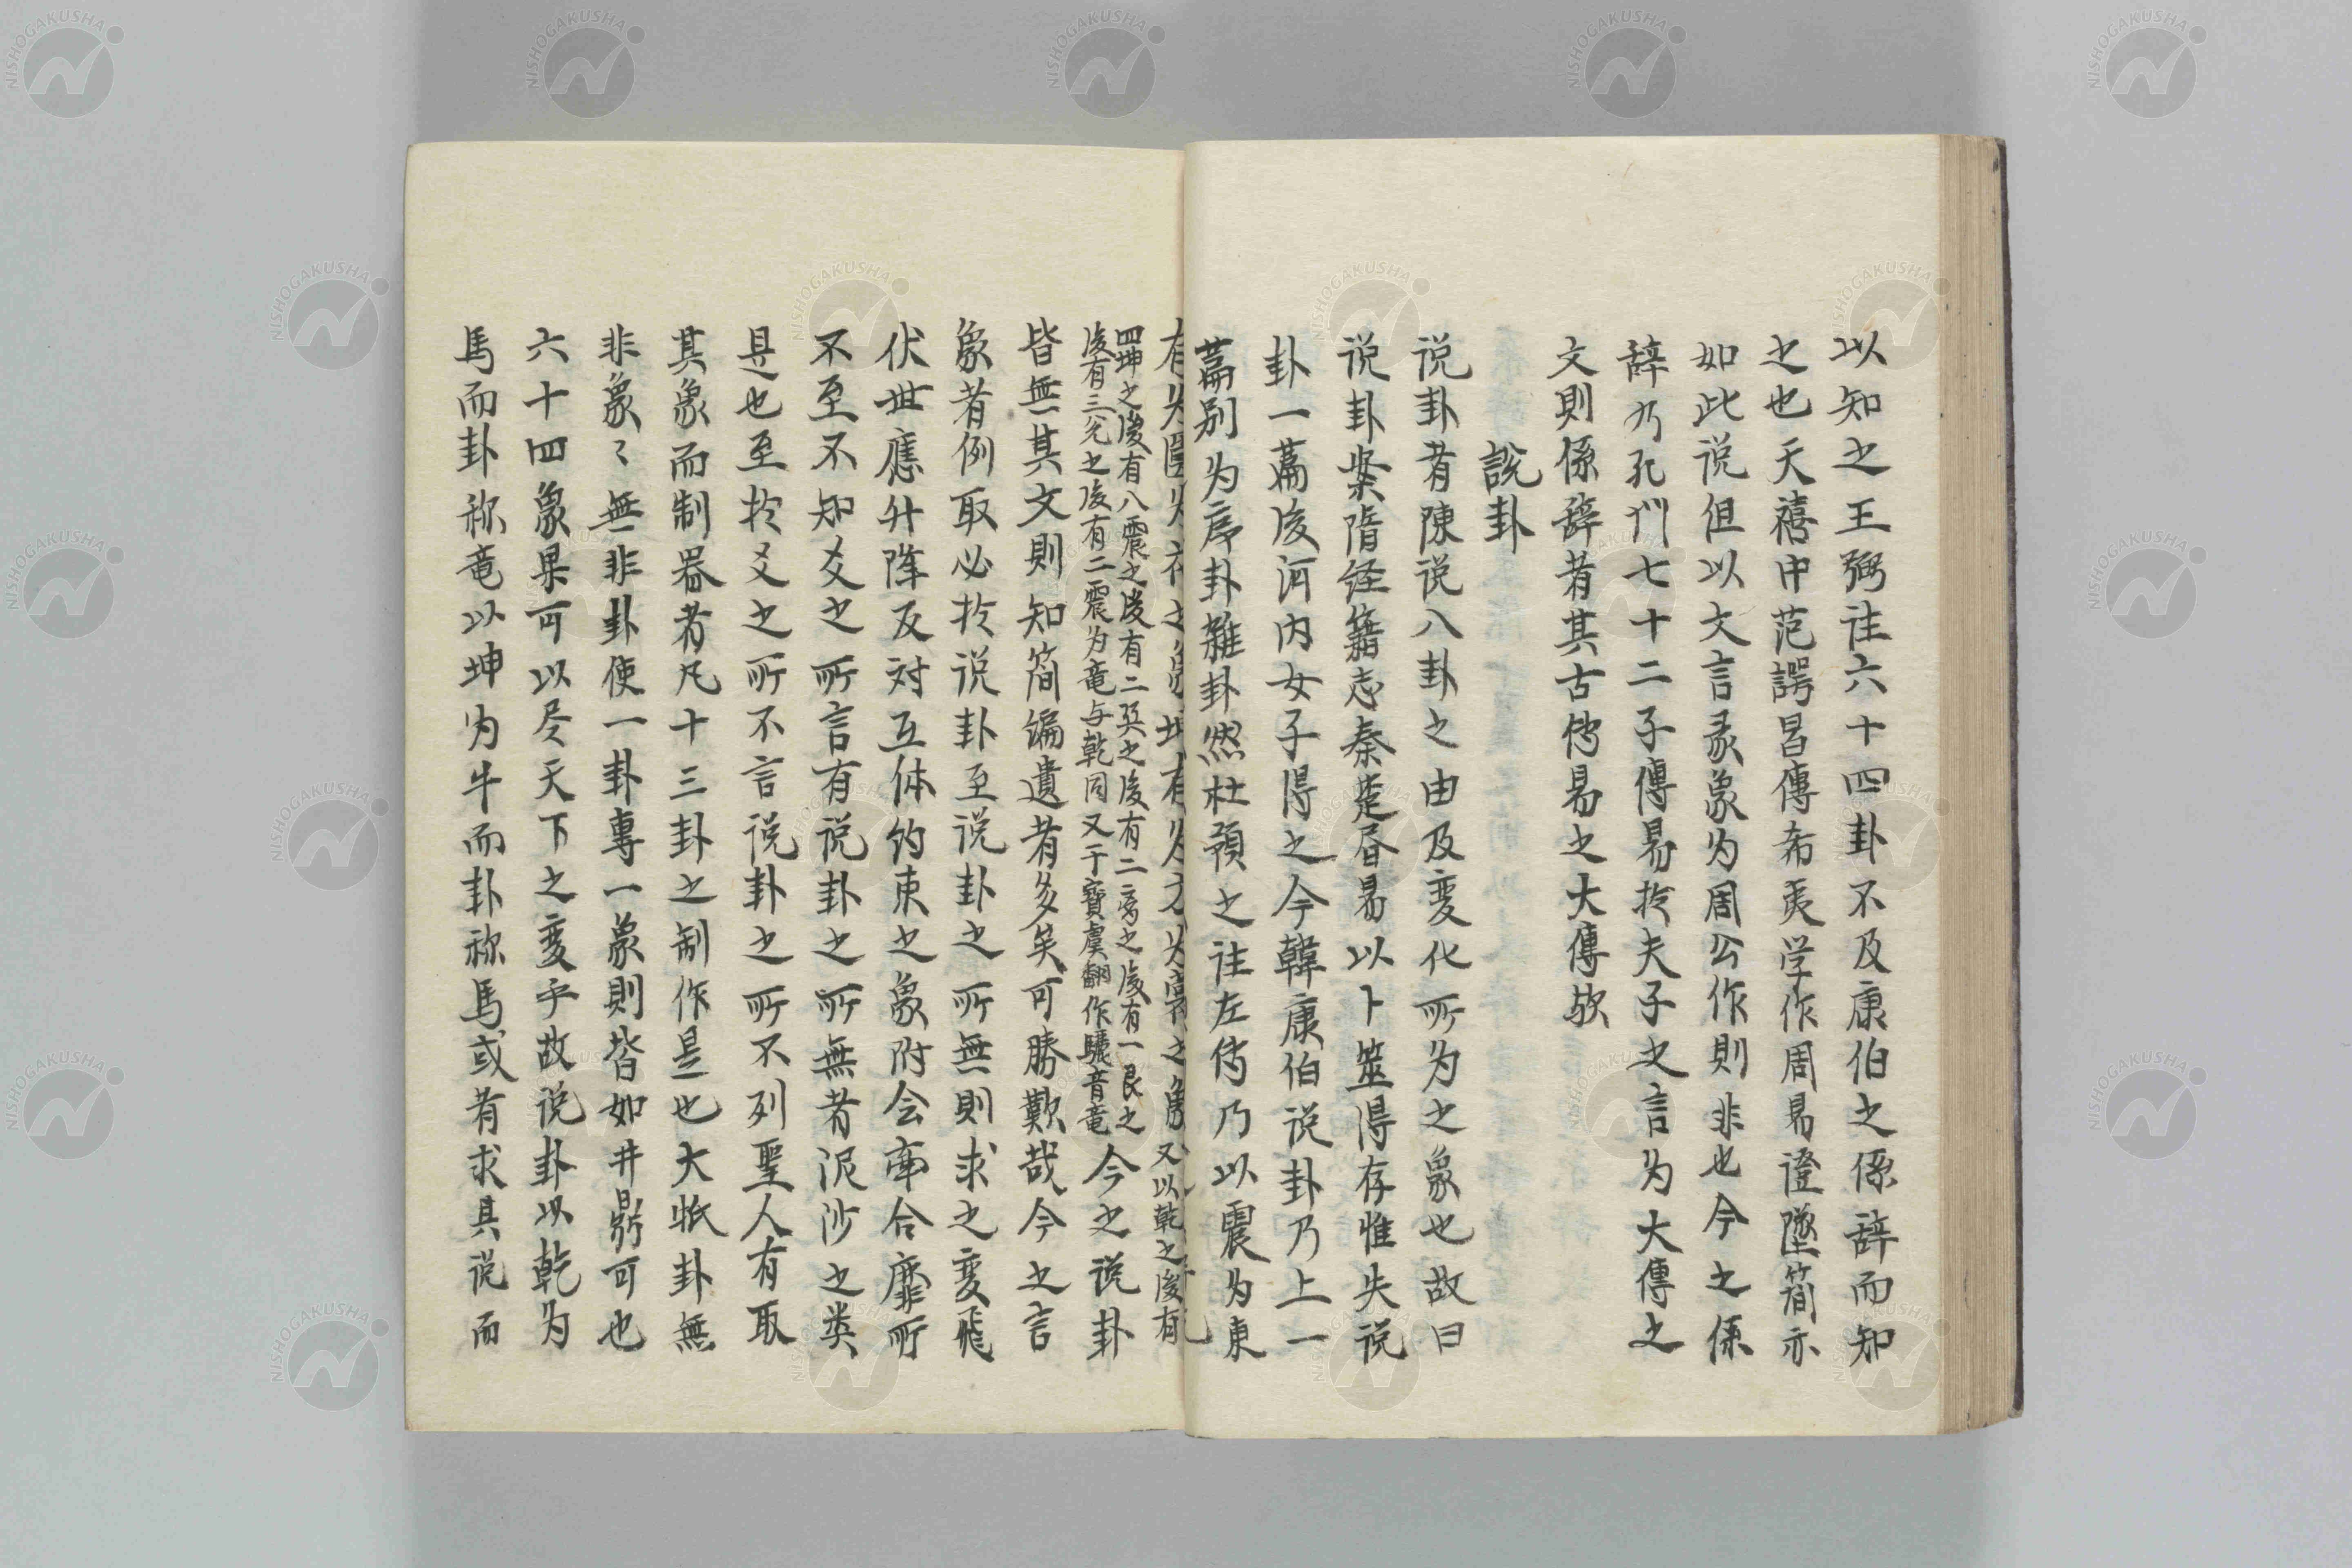 以知之王弼注六十四卦不及康伯之係辞而知
之也天禧中范諤昌傳希夷学作周易證墜簡亦
如此说但以文言彖象为周公作則非也今之係
辞乃孔门七十二子傳易於夫子之言为大傳之
文則係辞者其古传易之大傳欤
說卦
说卦者陳说八卦之由及变化所为之象也故曰
说卦案隋经籍志秦楚昏易以卜筮得存惟失说
卦一萹後河内女子得之今韓康伯说卦乃上一
萹别为序卦雜卦然杜預之注左传乃以震为東
又以乾之後有
四坤之後有八震之後有二巽之後有二
之後有一艮之
後有三兌之後有二震为竜与乾同又干寶虞翻作驪音竜
今之说卦
皆無其文則知简编遺者多矣可勝歎哉今之言
象者例取必於说卦至说卦之所無則求之变飛
伏世應升降反対互体约束之象附会牽合靡所
不至不知爻之所言有说卦之所無者泥沙之类
是也至於爻之所不言说卦之所不列聖人有取
其象而制器者凡十三卦之制作是也大抵卦無
非象〻無非卦使一卦專一象則皆如井鼎可也
六十四象果可以尽天下之变乎故说卦以乾为
馬而卦称竜以坤为牛而卦称馬或有求其说而
NISHOGAKUSHA